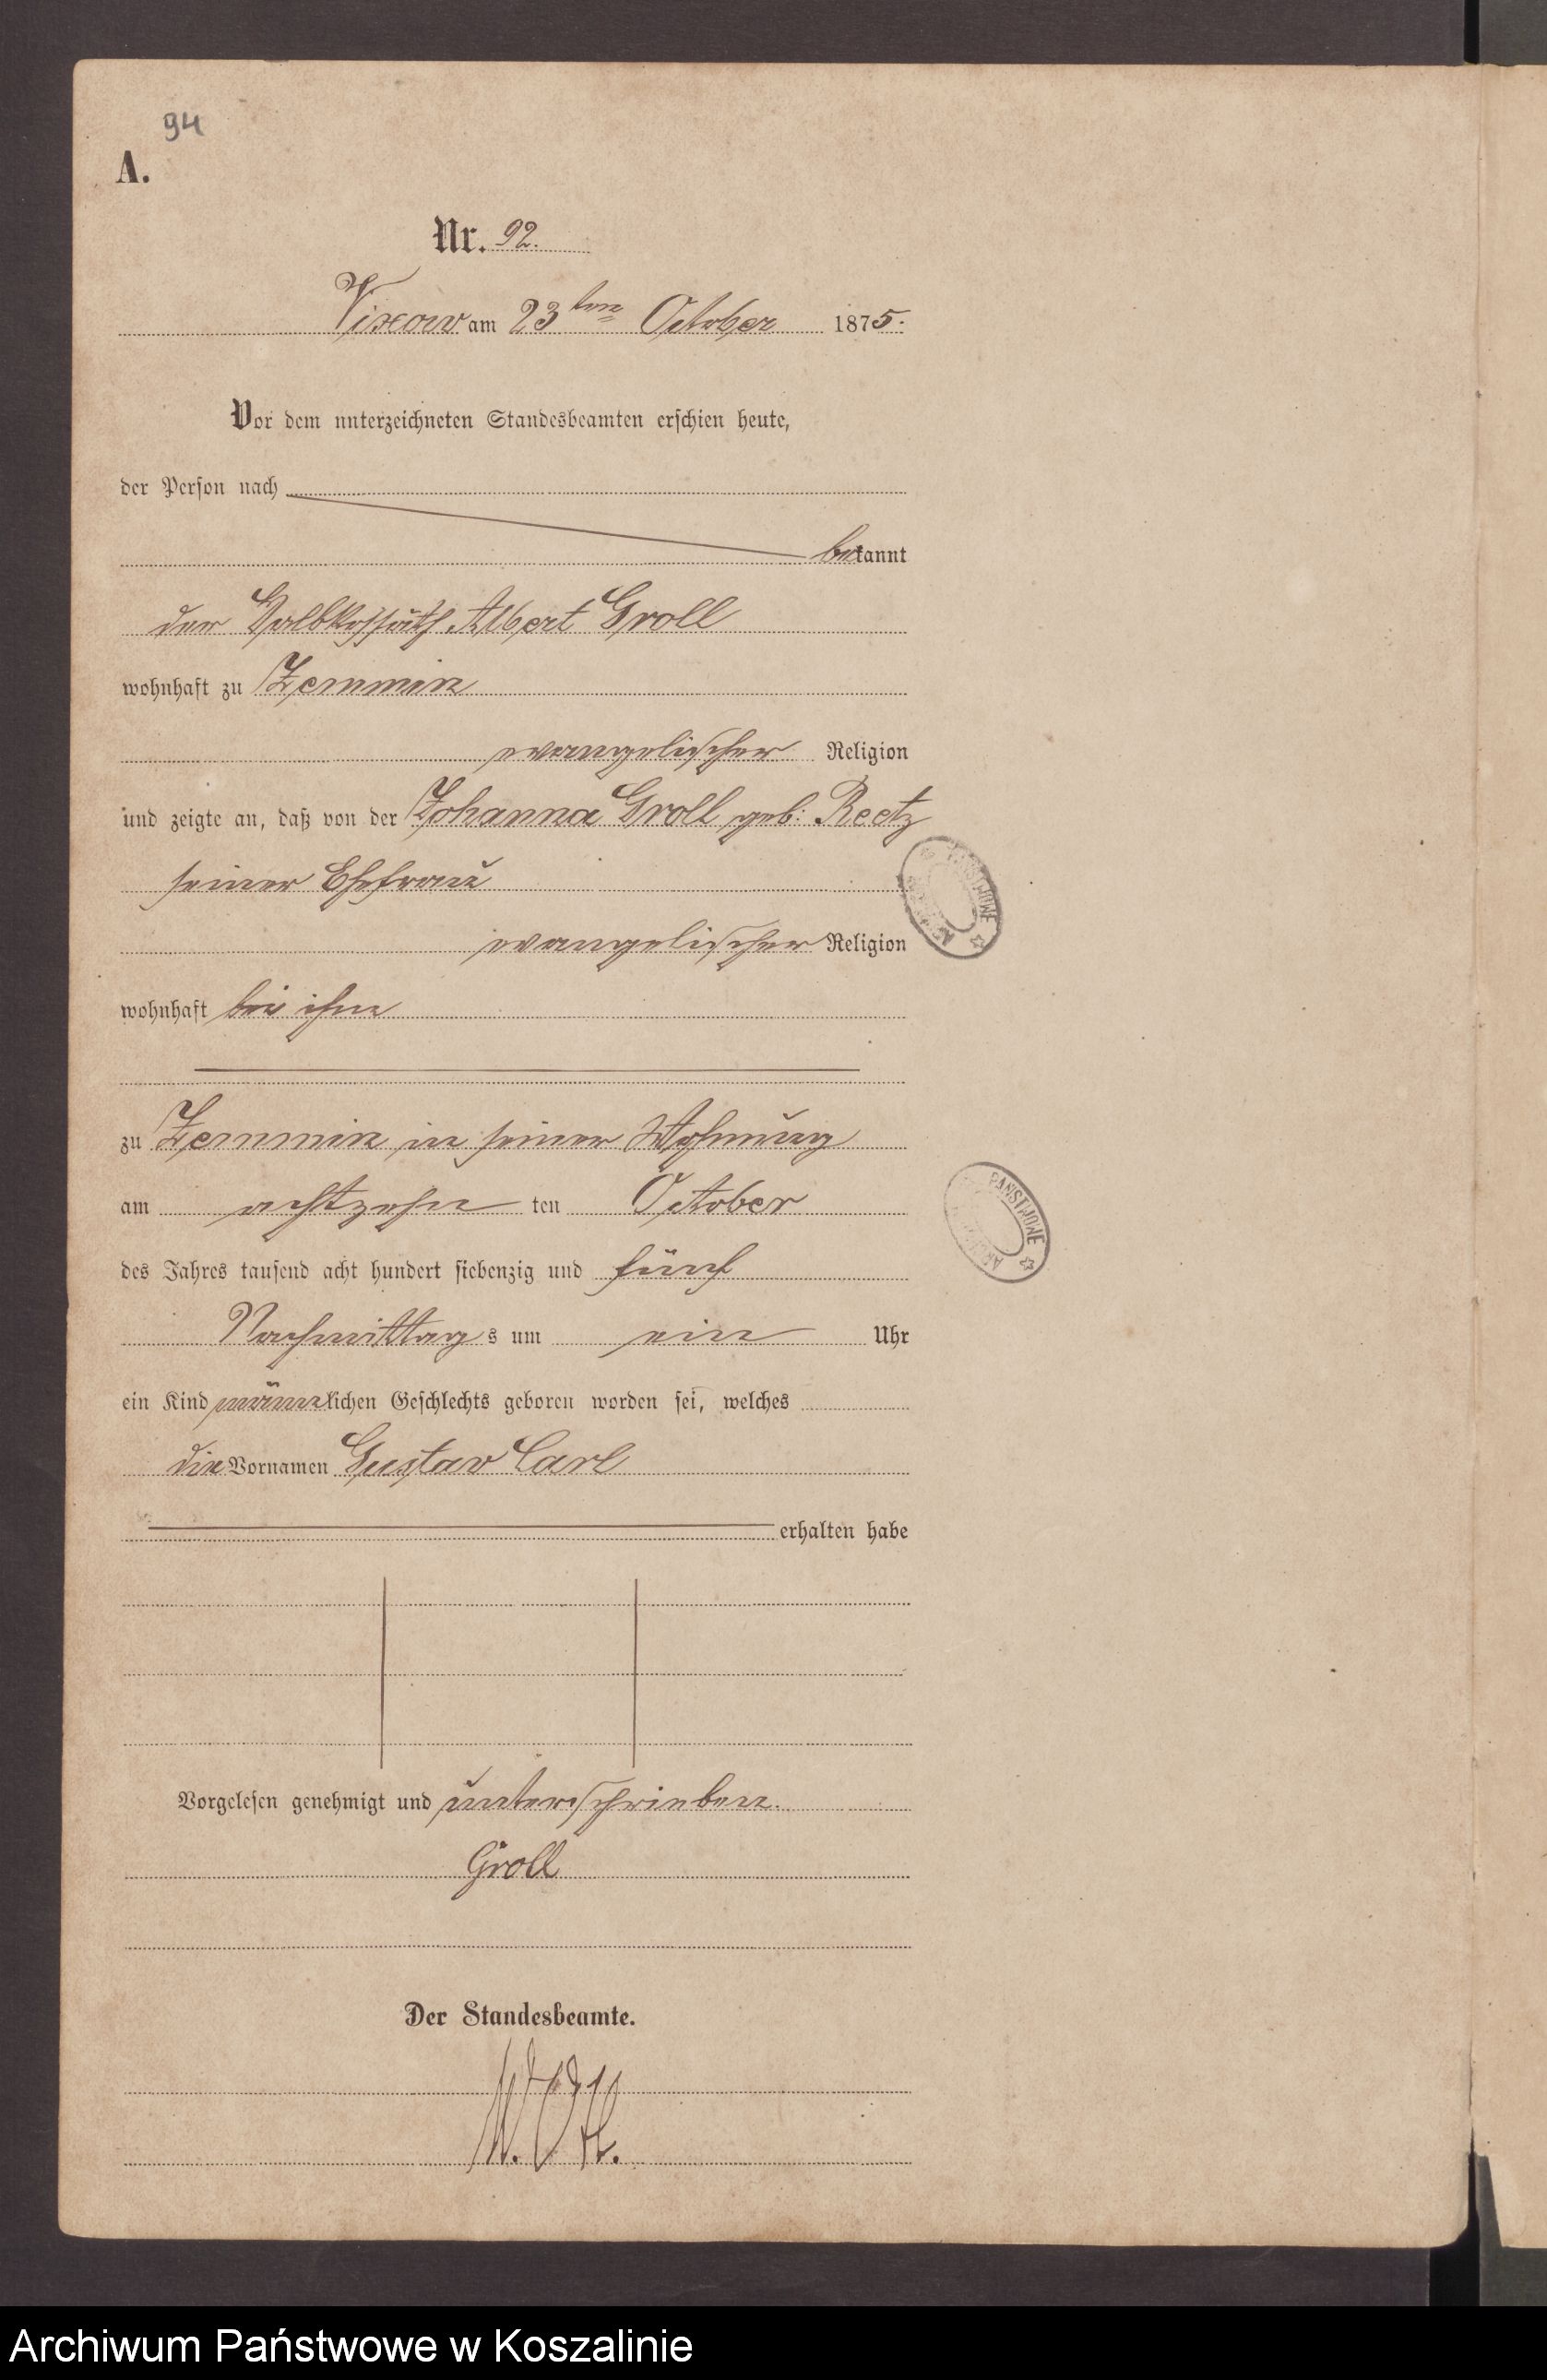 94
A.
Nr. 92.
Vixow am 23ten October 1875.
Vor dem unterzeichneten Standesbeamten erschien heute,
der Person nach
bekannt
der Halbkossäth Albert Groll
wohnhaft zu Zemmin
evangelischer Religion
und zeigte an, daß von der Johanna Groll geb: Reetz
seiner Ehefrau
evangelischer Religion
wohnhaft bei ihm
zu Zemmin in seiner Wohnung
am achtzehn ten October
des Jahres tausend acht hundert siebenzig und fünf
Nachmittag s um ein Uhr
ein Kind männlichen Geschlechts geboren worden sei, welches
die Vornamen Gustav Carl
erhalten habe
Vorgelesen genehmigt und unterschrieben.
Groll
Der Standesbeamte.
PAŃSTWOWE
PAŃSTWOWE
Archiwum Państwowe w Koszalinie